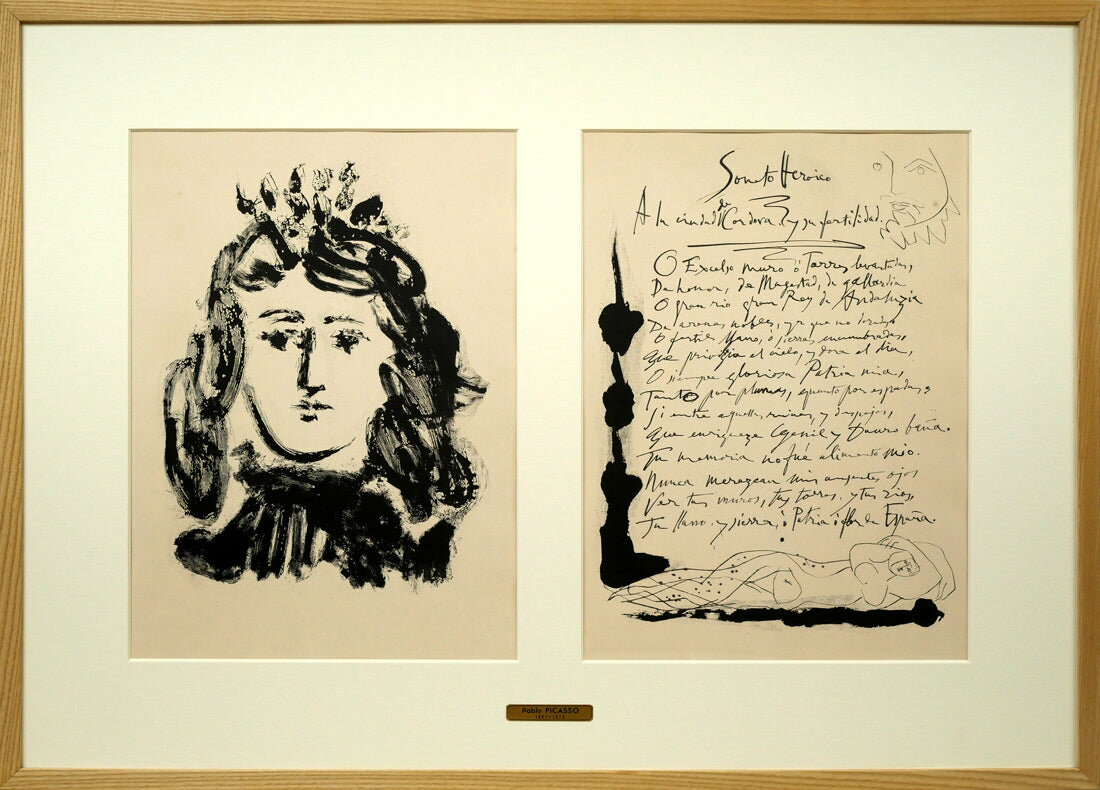 Soneto Heroico
A la ciudad de Cordova. (y su fertilidad.
O Excelso muro ô Torres levantadas,
De honor, de Magestad, de gallardia
O gran rio gran Rey de Andaluzia
De arenas nobles, ya que no
O fertil llano, ô sierras encumbradas,
Que privilegia el cielo, y dora el dia,
O siempre gloriosa Patria mia,
Tanto por plumas, quanto por espadas,
Si entre aquellas ruinas, y despojos,
Que enriqueze Genil y Dauro baña.
Tu memoria no fué alimento mio.
Nunca merezcan mis ausentes ojos
Ver tus muros, tus torres, y tus rios,
Tu llano. y sierra, ô Patria ô flor de España.
Pablo PICASSO
1881-1973